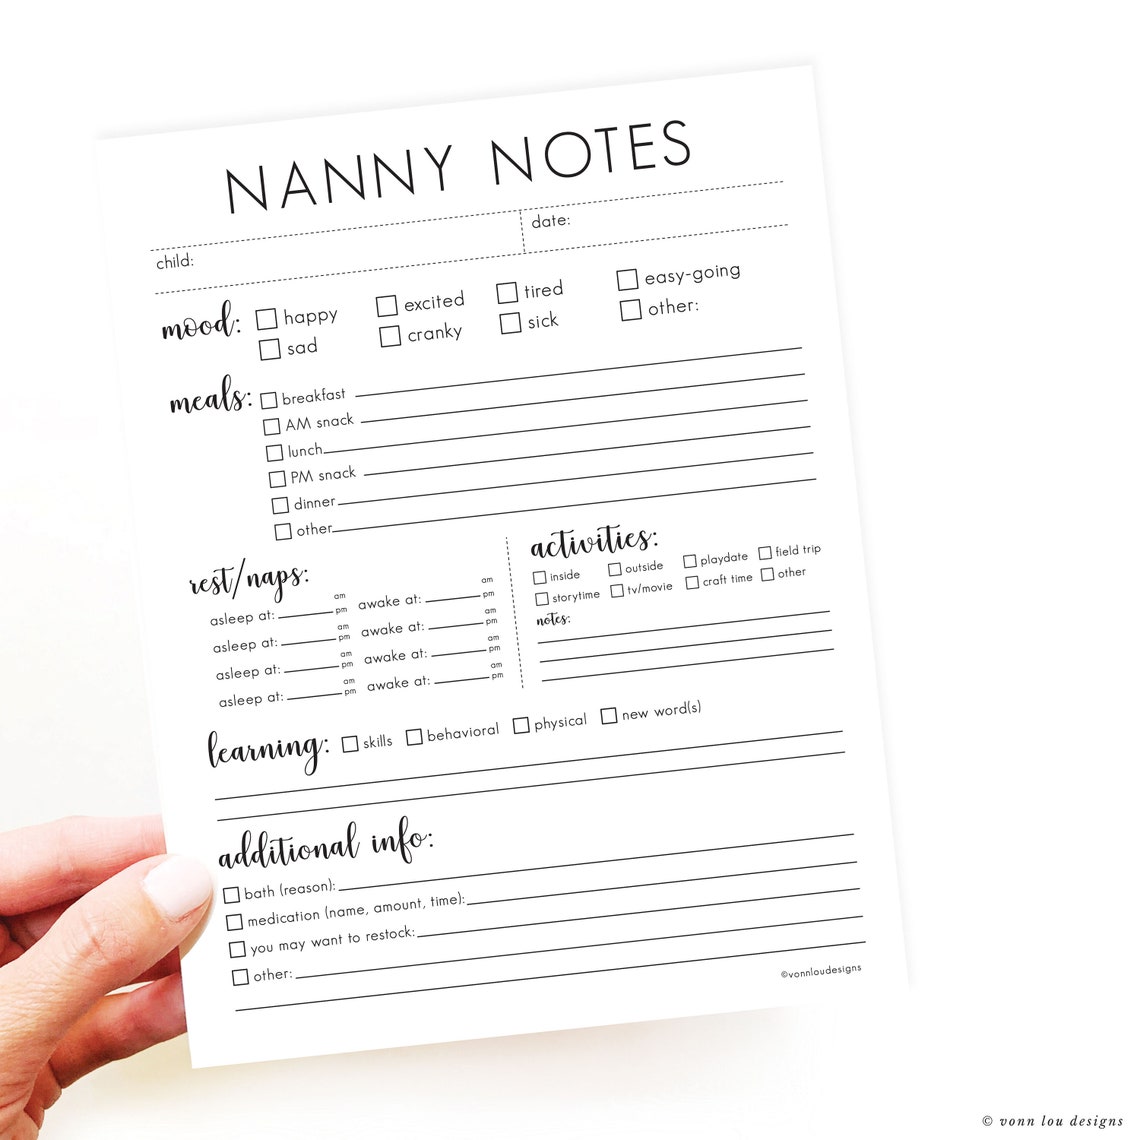 NANNY NOTES
child: date:
mood: happy excited tired easy-going
sad cranky sick other:
meals: breakfast
AM snack
lunch
PM snack
dinner
other
rest/naps:
asleep at: am pm awake at: am pm
asleep at: am pm awake at: am pm
asleep at: am pm awake at: am pm
asleep at: am pm awake at: am pm
activities:
inside outside playdate field trip
storytime tv/movie craft time other
notes:
learning: skills behavioral physical new word(s)
additional info:
bath (reason):
medication (name, amount, time):
you may want to restock:
other:
©vonnloudesigns
© vonn lou designs